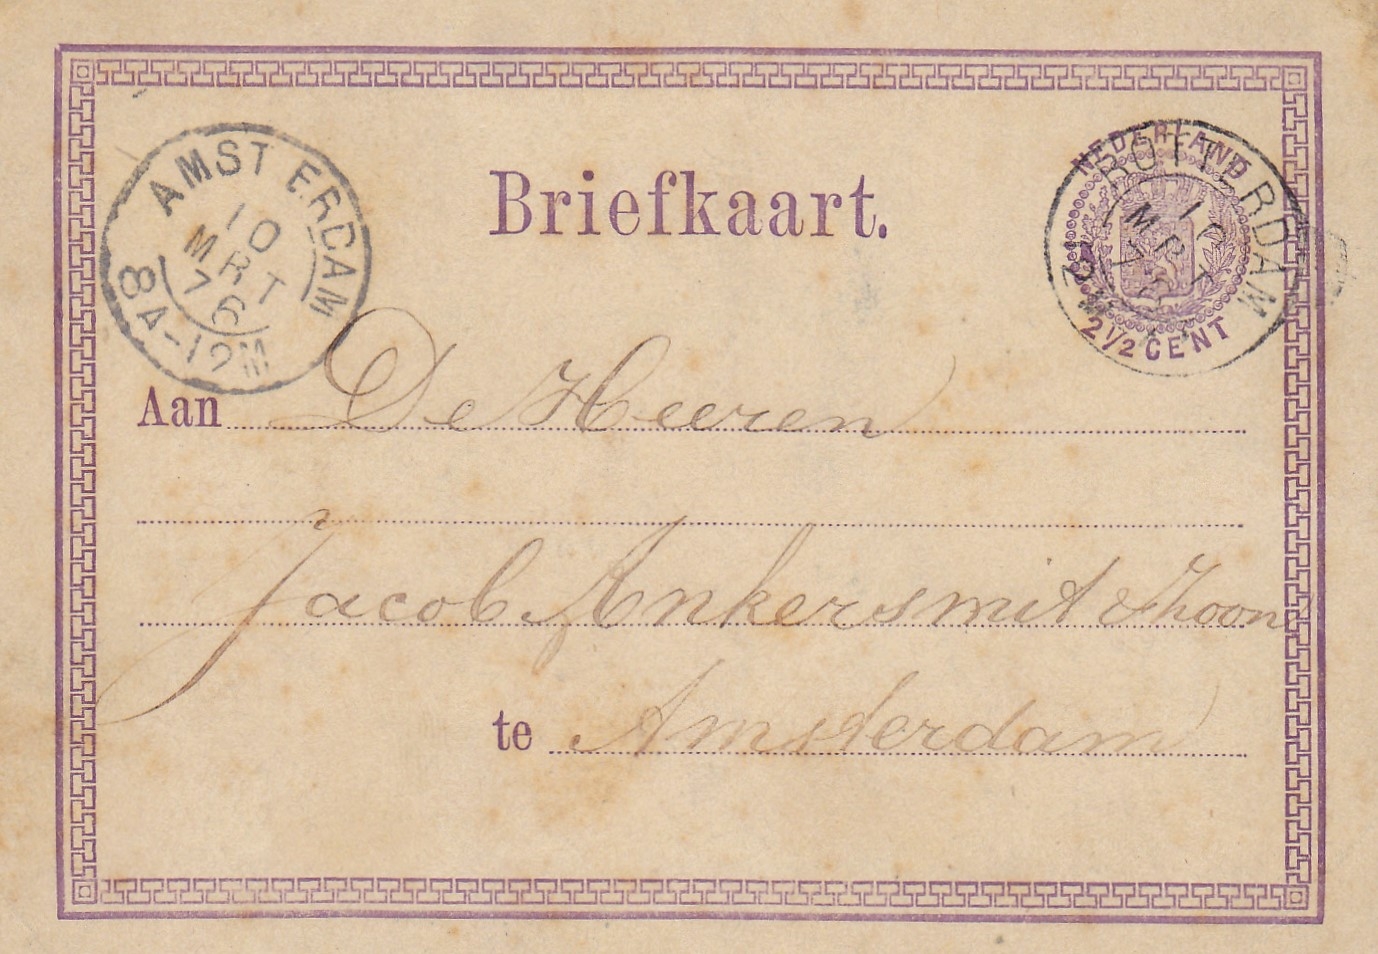 AMSTERDAM
10
MRT
76
8A-12M
NEDERLAND
2 1/2 CENT
ROTTERDAM
10
MRT
76
Briefkaart.
Aan De Heeren
Jacob Ankersmit & Zoon
te Amsterdam